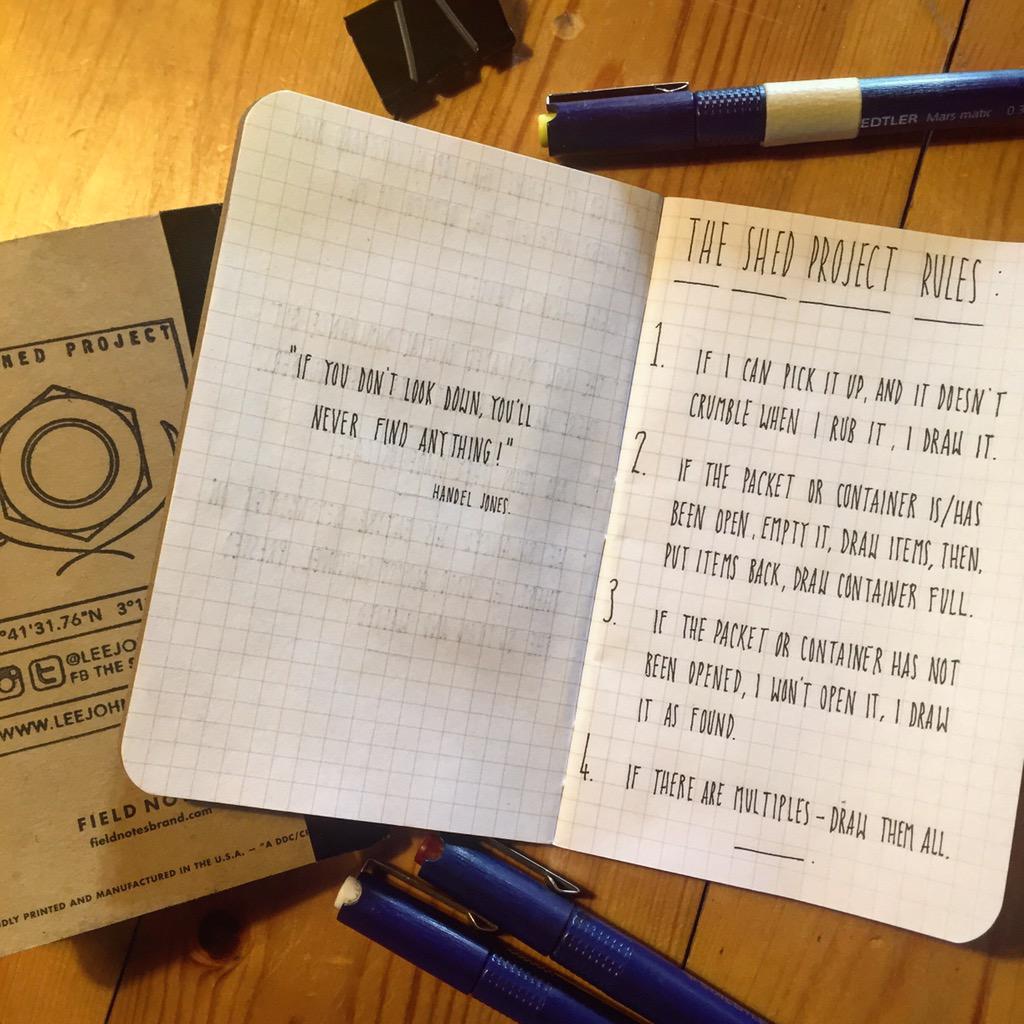 "IF YOU DON'T LOOK DOWN, YOU'LL
NEVER FIND ANYTHING!"
HANDEL JONES.
THE SHED PROJECT RULES:
1. IF I CAN PICK IT UP, AND IT DOESN'T
CRUMBLE WHEN I RUB IT, I DRAW IT.
2. IF THE PACKET OR CONTAINER IS/HAS
BEEN OPEN, EMPTY IT, DRAW ITEMS, THEN,
PUT ITEMS BACK, DRAW CONTAINER FULL.
3 IF THE PACKET OR CONTAINER HAS NOT
BEEN OPENED, I WON'T OPEN IT, I DRAW
IT AS FOUND.
4. IF THERE ARE MULTIPLES - DRAW THEM ALL.
HED PROJECT
°41'31.76"N 3°1
@LEEJO
FB THE S
WWW.LEEJOH
FIELD NO
fieldnotesbrand.com
DLY PRINTED AND MANUFACTURED IN THE U.S.A. — "A DDC/C
EDTLER Mars matic 0.3